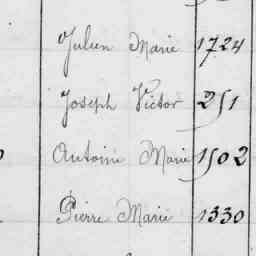 Julien Marie 1724
Joseph Victor 251
Antoine Marie 1502
Pierre Marie 1330